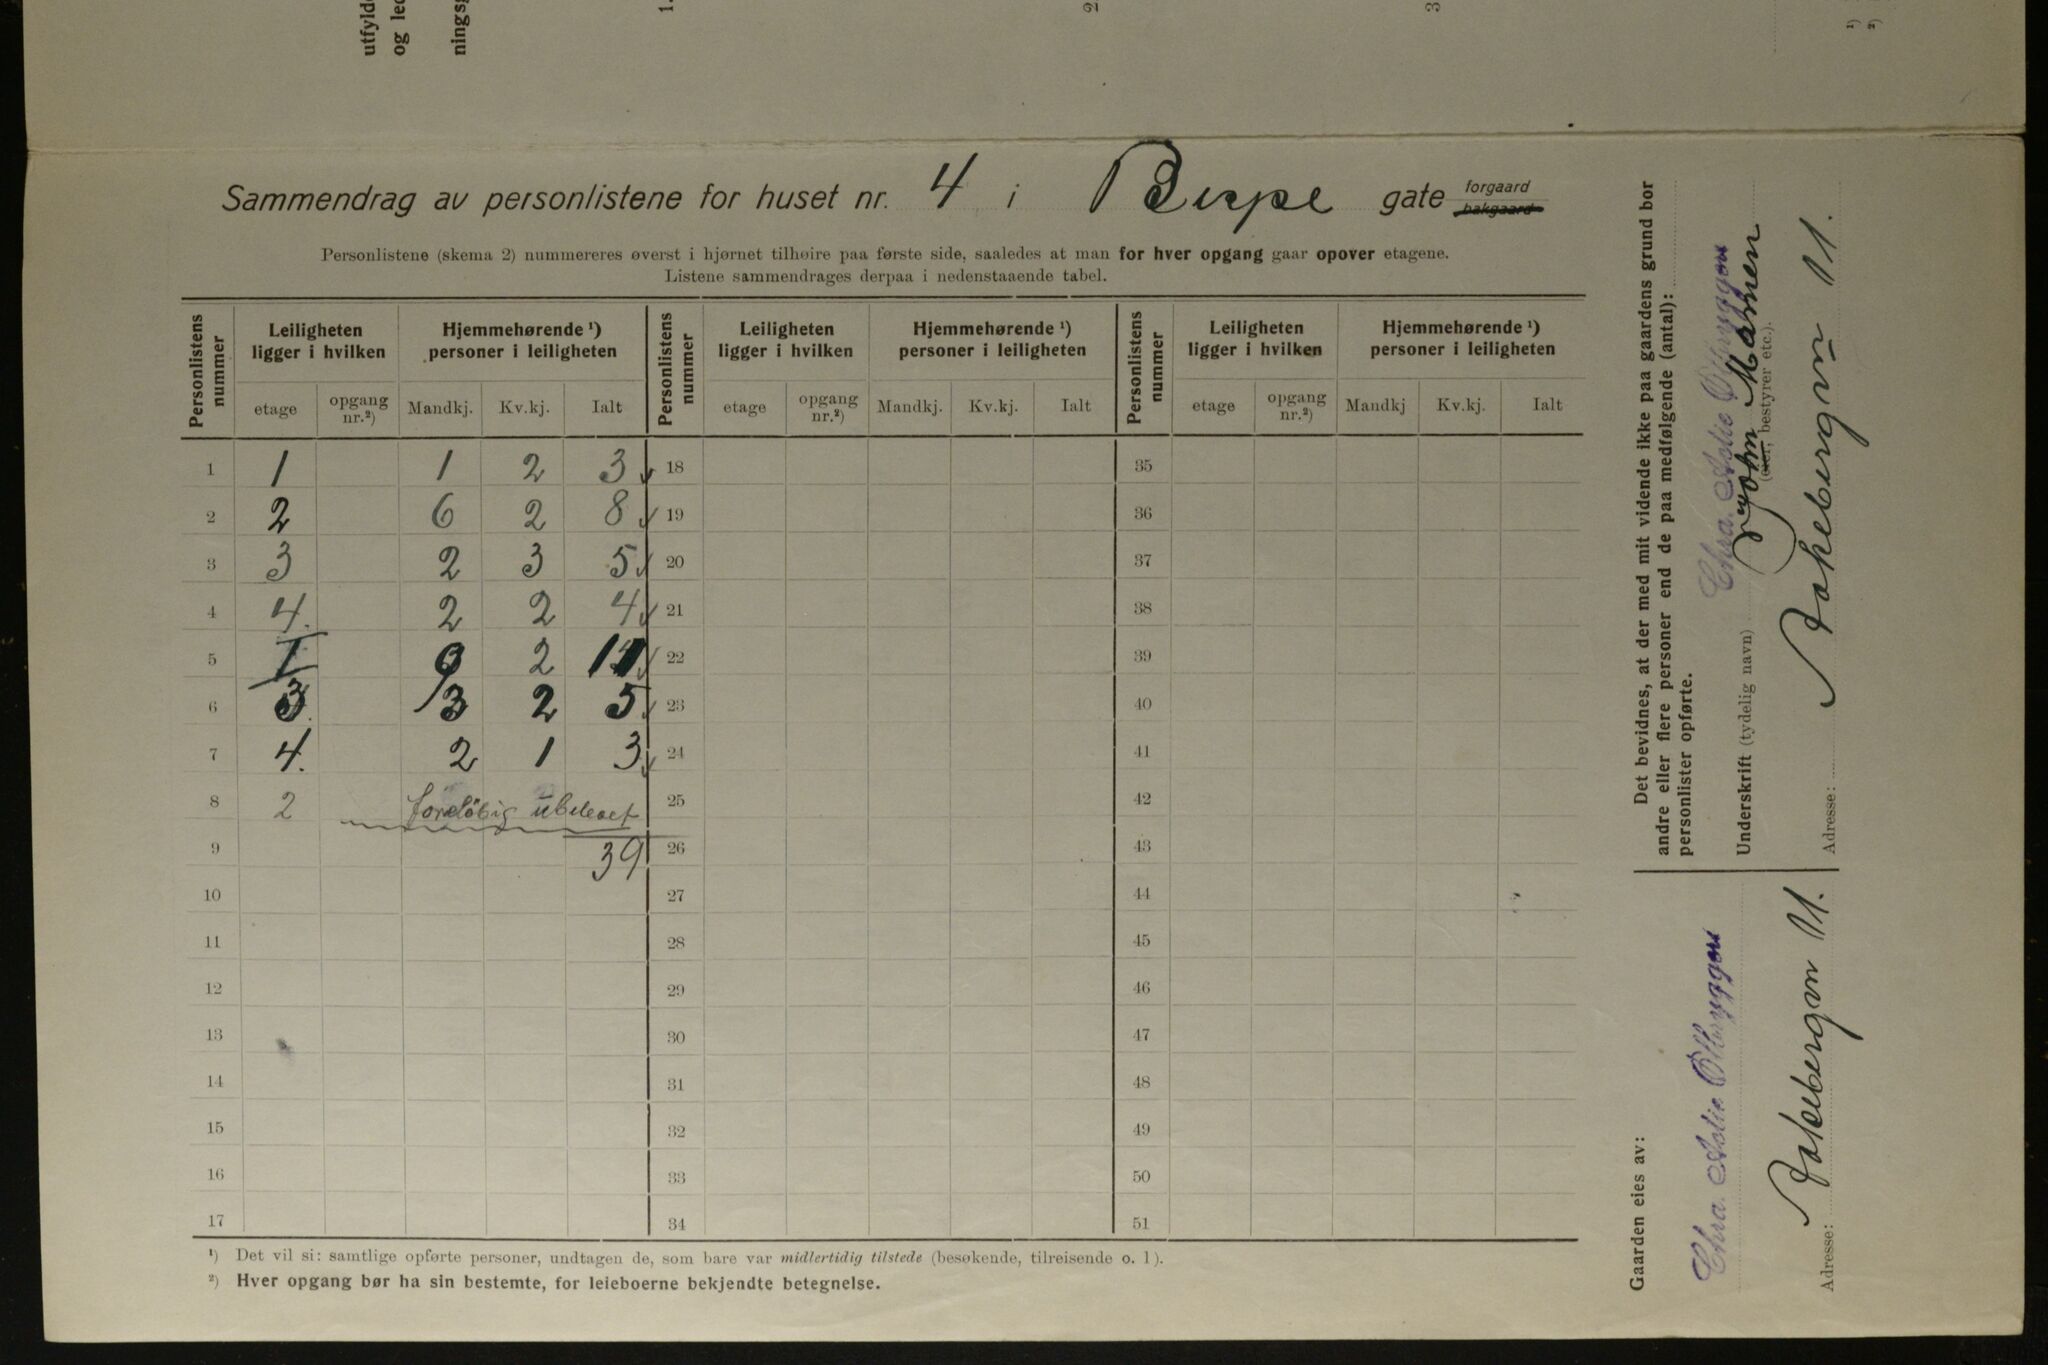 utfylde
og led
ningsg
1.
2
3
¹)
²)
Sammendrag av personlistene for huset nr. 4 i Bispe gate forgaard bakgaard
Personlistene (skema 2) nummereres øverst i hjørnet tilhøire paa første side, saaledes at man for hver opgang gaar opover etagene.
Listene sammendrages derpaa i nedenstaaende tabel.
Personlistens nummer | Leiligheten ligger i hvilken | Hjemmehørende ¹) personer i leiligheten | Personlistens nummer | Leiligheten ligger i hvilken | Hjemmehørende ¹) personer i leiligheten | Personlistens nummer | Leiligheten ligger i hvilken | Hjemmehørende ¹) personer i leiligheten
etage | opgang nr.²) | Mandkj. | Kv.kj. | Ialt | etage | opgang nr.²) | Mandkj. | Kv.kj. | Ialt | etage | opgang nr.²) | Mandkj | Kv.kj. | Ialt
1 1 1 2 3 18 35
2 2 6 2 8 19 36
3 3 2 3 5 20 37
4 4. 2 2 4 21 38
5 1 9 2 11 22 39
6 3. 3 2 5 23 40
7 4. 2 1 3 24 41
8 2 foreløbig ubeboet 25 42
9 39 26 43
10 27 44
11 28 45
12 29 46
13 30 47
14 31 48
15 32 49
16 33 50
17 34 51
¹) Det vil si: samtlige opførte personer, undtagen de, som bare var midlertidig tilstede (besøkende, tilreisende o. l).
²) Hver opgang bør ha sin bestemte, for leieboerne bekjendte betegnelse.
Det bevidnes, at der med mit vidende ikke paa gaardens grund bor
andre eller flere personer end de paa medfølgende (antal):
personlister opførte.
Chra. Actie Ølbryggeri
Underskrift (tydelig navn) John
(eier, bestyrer etc.).
Adresse: Aakebergvn 11.
Gaarden eies av:
Chra. Actie Ølbryggeri
Adresse: Aakebergvn 11.